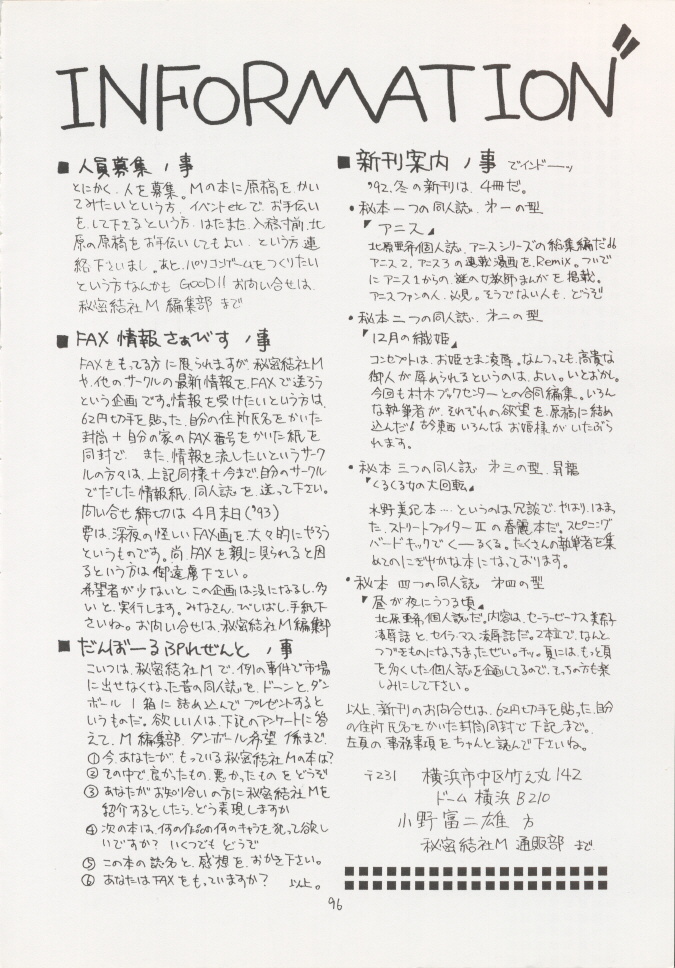 INFORMATION
■ 人員募集ノ事
とにかく、人を募集。Mの本に原稿をかい
てみたいという方、イベントetcで、お手伝い
をして下さるという方、はたまた、入稿寸前、北
原の原稿をお手伝いしてもよい、という方連
絡下さいまし。あと、パソコンゲームをつくりたい
という方なんかもGOOD!! お向い合せは、
秘密結社M 編集部まで
■ FAX情報さぁびすノ事
FAXをもってる方に限られますが、秘密結社M
や、他のサークルの最新情報を、FAXで送ろう
という企画です。情報を受けたいという方は、
62円切手を貼った、自分の住所氏名をかいた
封筒+自分の家のFAX番号をかいた紙を
同封で、また、情報を流したいというサーク
ルの方々は、上記同様+今まで、自分のサークル
でだした情報紙、同人誌を、送って下さい。
問い合せ締切は4月末日('93)
要は、深夜の怪しいFAX画を、大々的にやろう
というものです。尚、FAXを親に見られると困
るという方は御遠慮下さい。
希望者が少ないと、この企画は没になるし、多
いと、実行します。みなさん、びしばし、手紙下
さいね。お向い合せは、秘密結社M編集部
■ だんぼーるぷれぜんとノ事
こいつは、秘密結社Mで、例の事件で市場
に出せなくなった昔の同人誌を、ドーンと、ダン
ボール1箱に詰め込んで、プレゼントすると
いうものだ。欲しい人は、下記のアンケートに答
えて、M編集部、ダンボール希望係まで、
①今、あなたが、もっている秘密結社Mの本は?
②その中で、良かったもの、悪かったものをどうぞ
③あなたがお知り合いの方に秘密結社Mを
紹介するとしたら、どう表現しますか
④次の本は、何の作品の何のキャラを犯って欲し
いですか? いくつでもどうぞ
⑤この本の誌名と、感想を、おかき下さい。
⑥あなたはFAXをもっていますか? 以上。
■ 新刊案内ノ事 でインドーーッ
'92.冬の新刊は、4冊だ。
・秘本一つの同人誌、第一の型
『アニス』
北原亜希個人誌、アニスシリーズの総集編だ!!
アニス2、アニス3の連載漫画を、Remix。ついで
にアニス1からの、謎の女教師まんがを掲載。
アニスファンの人、必見。そうでない人も、どうぞ
・秘本二つの同人誌、第二の型
『12月の織姫』
コンセプトは、お姫さま凌辱。なんつっても、高貴な
御人が辱められるというのは、よい。いとおかし。
今回も村木ブックセンターとの合同編集。いろん
な執筆者が、それぞれの欲望を、原稿に詰め
込んだ!! 古今東西いろんなお姫様がいたぶら
れます。
・秘本三つの同人誌 第三の型、昇龍
『くるくる女の大回転』
水野美紀本‥‥というのは、冗談で、やはり、はまっ
た、ストリートファイターⅡの春麗本だ。スピニング
バードキックでくーるくる。たくさんの執筆者を集
めてのにぎやかな本になっております。
・秘本 四つの同人誌 第四の型
『昼が夜にうつる頃』
北原亜希個人誌だ。内容は、セーラービーナス美奈子
凌辱話と、セイラ・マス凌辱話だ。2本立で、なんと
つづきものになっちまったぜい。チッ。夏には、もっと頁
を多くした個人誌を企画してるので、そっちの方も楽
しみにして下さい。
以上、新刊のお向合せは、62円切手を貼った、自分
の住所氏名をかいた封筒同封で下記まで。
左頁の事務事項をちゃんと読んで下さいね。
〒231 横浜市中区竹之丸142
ドーム横浜B210
小野富二雄方
秘密結社M 通販部まで
96